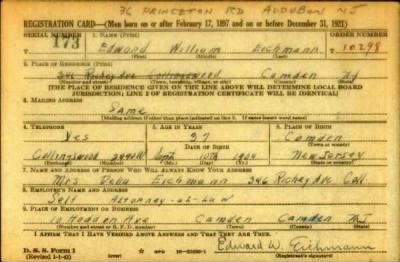 36 PRINCETON RD AUDUBON NJ
REGISTRATION CARD—(Men born on or after February 17, 1897 and on or before December 31, 1921)
SERIAL NUMBER 1. NAME (Print) ORDER NUMBER
T 173 Edward William Eichmann T 10298
2. PLACE OF RESIDENCE (Print)
346 Richey Ave Collingswood Camden NJ
(Number and street) (Town, township, village, or city) (County) (State)
[THE PLACE OF RESIDENCE GIVEN ON THE LINE ABOVE WILL DETERMINE LOCAL BOARD
JURISDICTION; LINE 2 OF REGISTRATION CERTIFICATE WILL BE IDENTICAL]
3. MAILING ADDRESS
Same
[Mailing address if other than place indicated on line 2. If same insert word same]
4. TELEPHONE 5. AGE IN YEARS 6. PLACE OF BIRTH
Yes 37 Camden
DATE OF BIRTH
Collingswood Sept 10th 1904 New Jersey
7. NAME AND ADDRESS OF PERSON WHO WILL ALWAYS KNOW YOUR ADDRESS
Mrs Eichmann 346 Richey Ave Coll.
8. EMPLOYER'S NAME AND ADDRESS
Self Attorney-at-Law
9. PLACE OF EMPLOYMENT OR BUSINESS
10 Haddon Ave Camden Camden N.J.
(Number and street or R. F. D. number) (Town) (County) (State)
I AFFIRM THAT I HAVE VERIFIED ABOVE ANSWERS AND THAT THEY ARE TRUE.
D. S. S. Form 1
(Revised 1-1-42)
Edward W. Eichmann